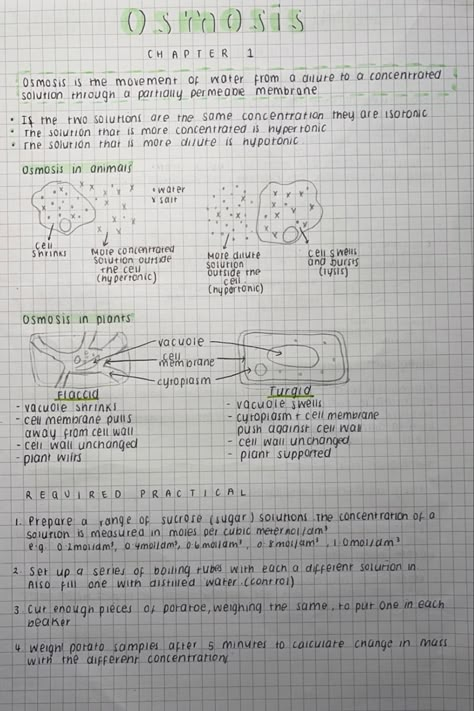 Osmosis
CHAPTER 1
Osmosis is the movement of water from a dilute to a concentrated
solution through a partially permeable membrane
• If the two solutions are the same concentration they are isotonic
• The solution that is more concentrated is hypertonic
• The solution that is more dilute is hypotonic
Osmosis in animals
• water
x salt
cell
shrinks
More concentrated
solution outside
the cell
(hypertonic)
More dilute
solution
outside the
cell
(hypertonic)
cell swells
and bursts
(lysis)
Osmosis in plants
vacuole
cell
membrane
cytoplasm
Flaccid
- vacuole shrinks
- cell membrane pulls
away from cell wall
- cell wall unchanged
- plant wilts
Turgid
- vacuole swells
- cytoplasm + cell membrane
push against cell wall
- cell wall unchanged
- plant supported
REQUIRED PRACTICAL
1. Prepare a range of sucrose (sugar) solutions The concentration of a
solution is measured in moles per cubic meter mol/dm³
e.g. 0.2mol/dm³, 0.4mol/dm³, 0.6mol/dm³, 0.8mol/dm³, 1.0mol/dm³
2. Set up a series of boiling tubes with each a different solution in
Also fill one with distilled water. (control)
3. Cut enough pieces of potatoe, weighing the same, to put one in each
beaker
4. Weight potato samples after 5 minutes to calculate change in mass
with the different concentration